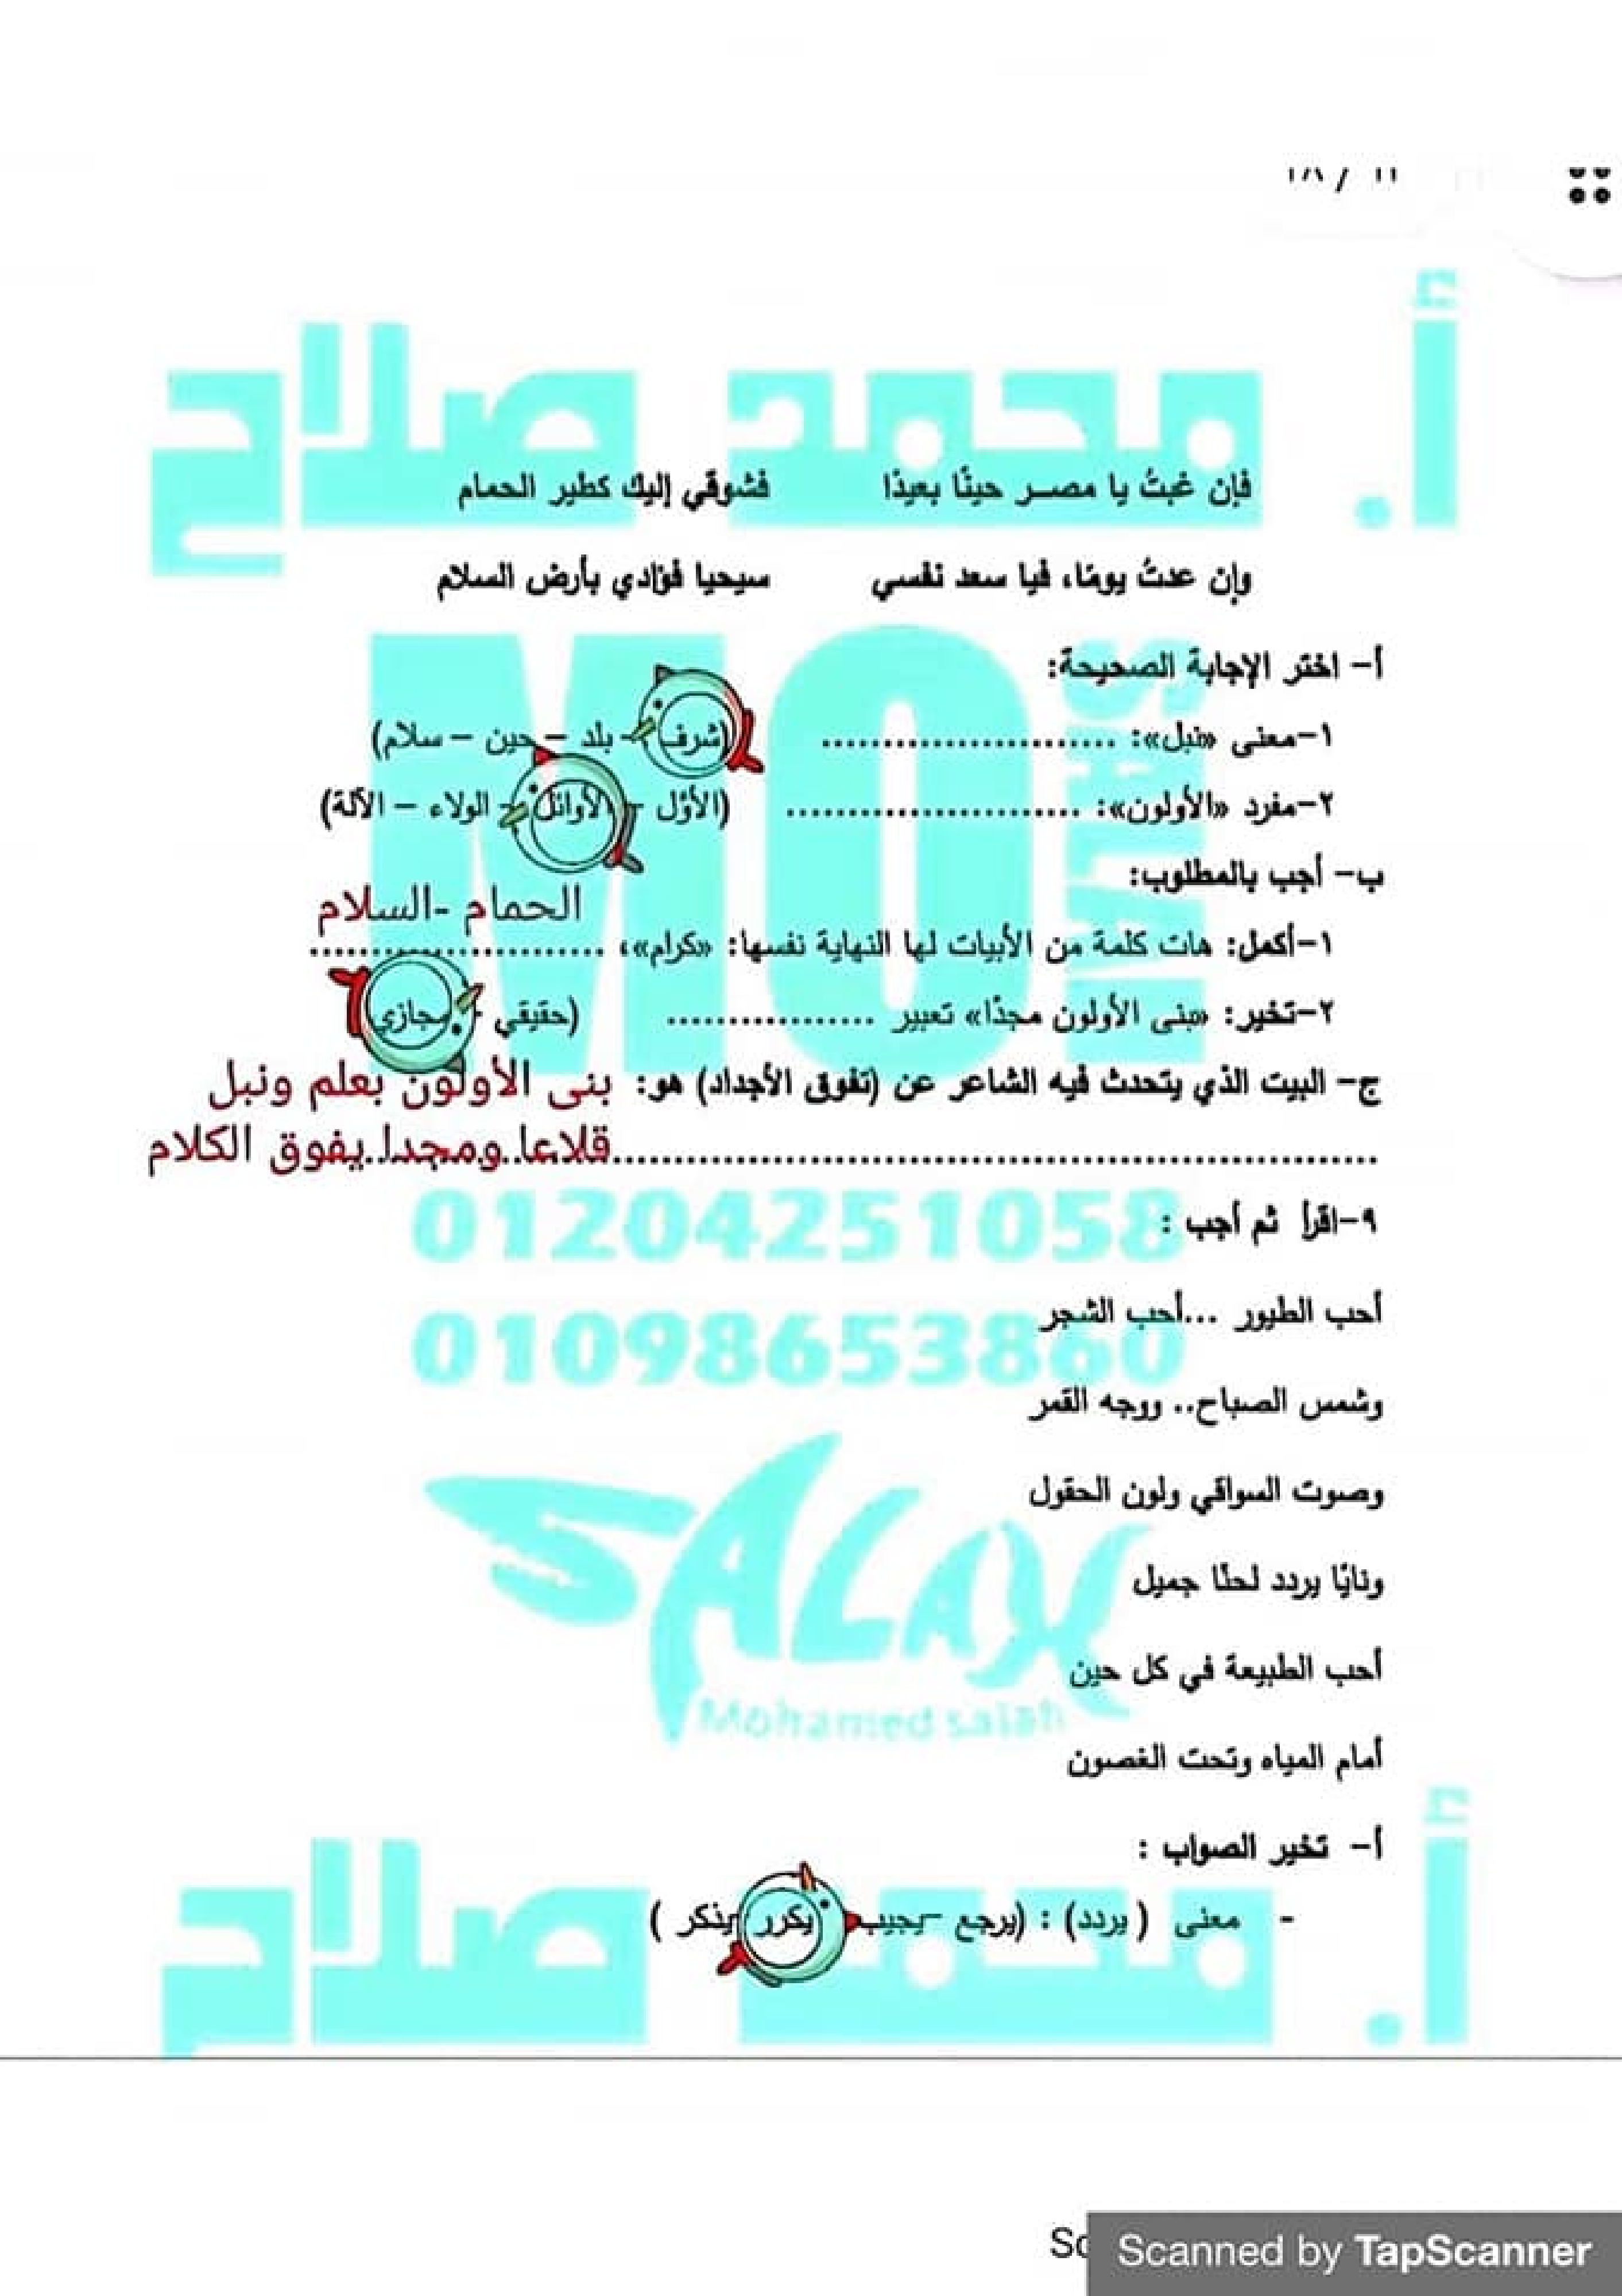 أ. محمد صلاح
فإن غبتُ يا مصر حينًا بعيدًا فشوقي إليك كطير الحمام
وإن عدتُ يومًا، فيا سعد نفسي سيحيا فؤادي بأرض السلام
MO
أ– اختر الإجابة الصحيحة:
١–معنى «نبل»: ........................ (شرف – بلد – حين – سلام)
٢–مفرد «الأولون»: ........................ (الأوَّل – الأوائل – الولاء – الآلة)
ب– أجب بالمطلوب:
الحمام -السلام
١–أكمل: هات كلمة من الأبيات لها النهاية نفسها: «كرام»، ........................
٢–تخير: «بنى الأولون مجدًا» تعبير ................. (حقيقي – مجازي
ج– البيت الذي يتحدث فيه الشاعر عن (تفوق الأجداد) هو: بنى الأولون بعلم ونبل
قلاعا ومجدا يفوق الكلام
01204251058
٩–اقرأ ثم أجب :
أحب الطيور ...أحب الشجر
01098653860
وشمس الصباح.. ووجه القمر
وصوت السواقي ولون الحقول
SALAH
ونايًا يردد لحنًا جميل
أحب الطبيعة في كل حين
Mohamed salah
أمام المياه وتحت الغصون
أ– تخير الصواب :
- معنى ( يردد) : (يرجع – يجيب – يكرر – يذكر )
أ. محمد صلاح
Scanned by TapScanner